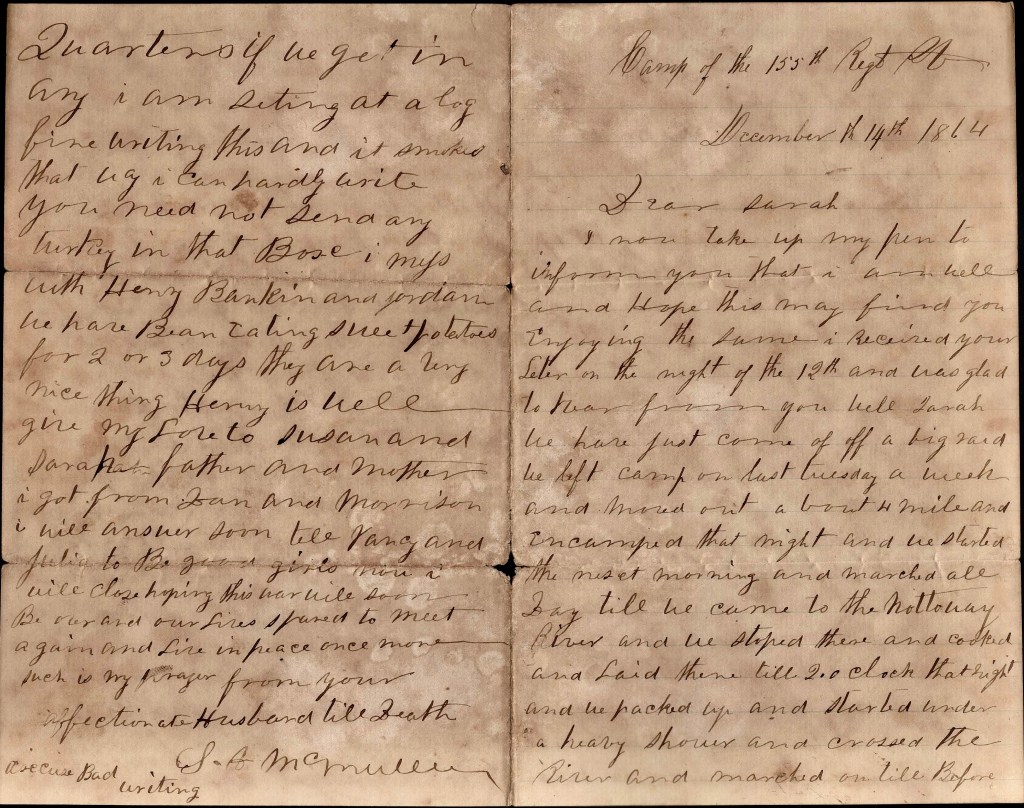 Camp of the 155th Regt
December th 14th 1864
Dear Sarah
I now take up my pen to
inform you that i am well
and Hope this may find you
Enjoying the same i received your
Leter on the night of the 12th and was glad
to Hear from you well Sarah
we have just come of off a big raid
we left camp on last tuesday a week
and moved out a bout 4 mile and
encamped that night and we started
the nexet morning and marched all
Day till we came to the Nottoway
River and we stoped there and cooked
and Laid there till 2 o clock that night
and we packed up and started under
a heavy shower and crossed the
River and marched on till Before
Quarters if we get in
any i am seting at a log
fire writing this and it smokes
that way i can hardly write
you need not send any
turkey in that Boxe i mess
with Henry Rankin and jordan
we have Bean Eating sweet potatoes
for 2 or 3 days they are a very
nice thing Henry is well
give my Love to Susan and
Sarah father and Mother
i got from Dan and Morrison
i will answer soon tell Nancy and
Julia to Be good girls now i
will close hoping this war will soon
Be over and our Lives spared to meet
again and Live in peace once more
such is my Prayer from your
affectionate Husband till Death
S. A McMullen
excuse Bad
writing